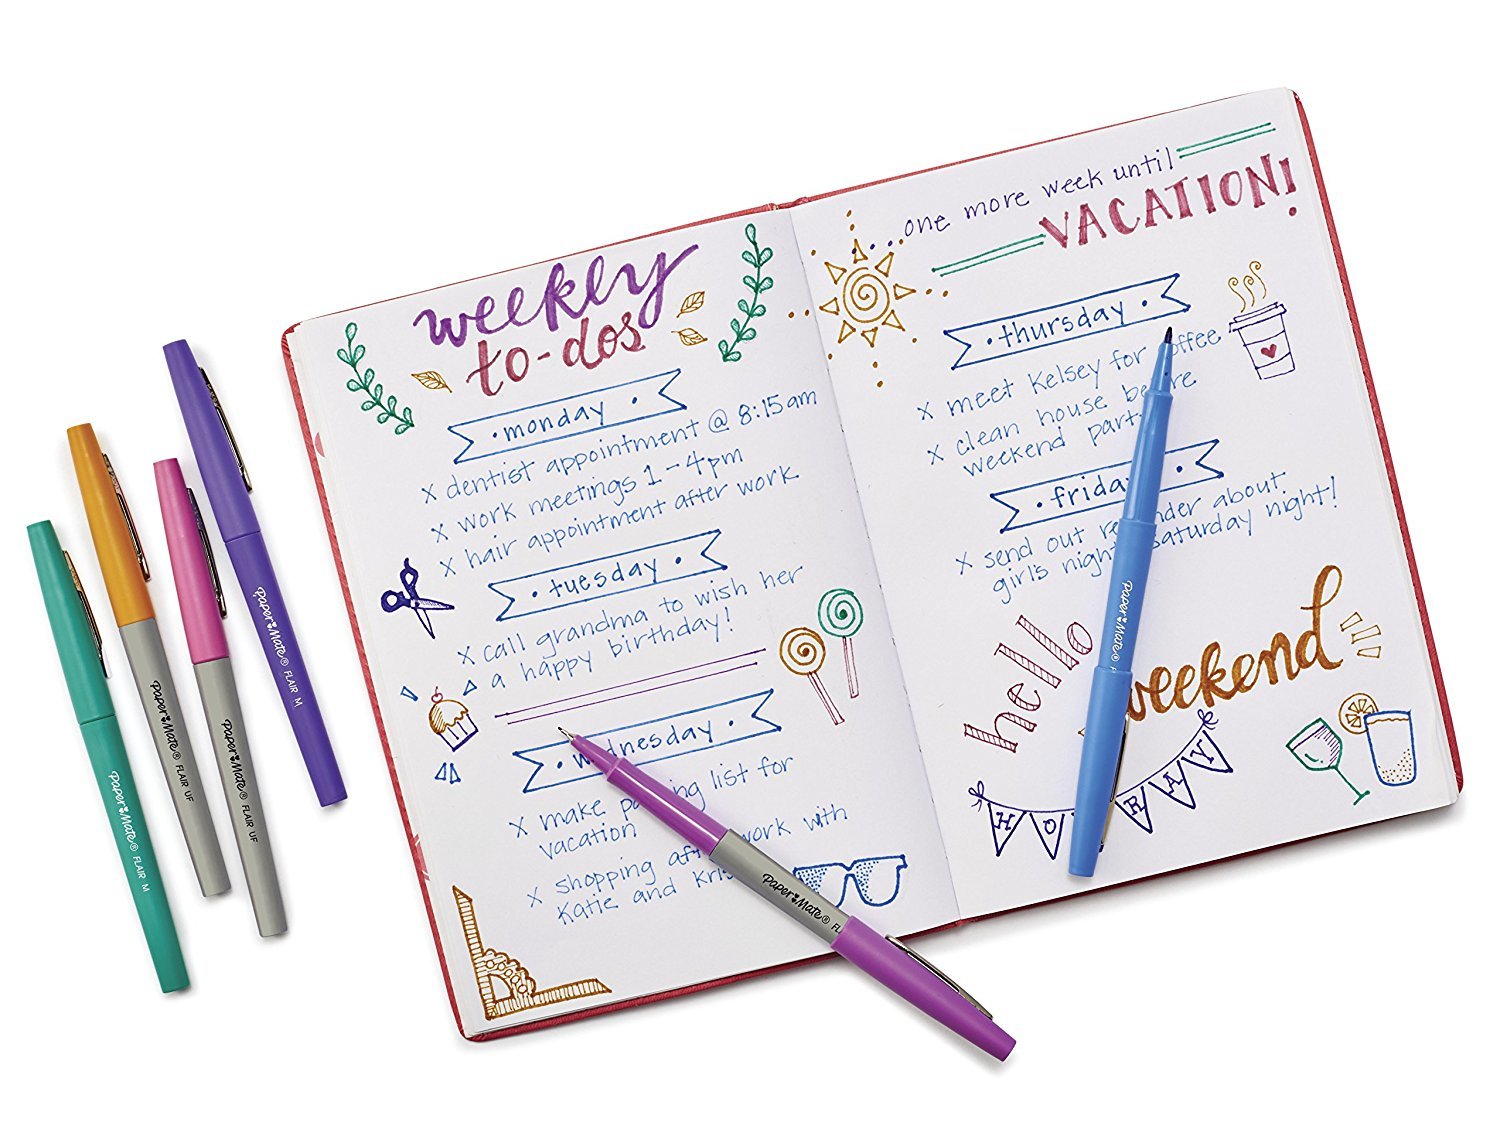 weekly
to-dos
monday
x dentist appointment @ 8:15am
x work meetings 1-4pm
x hair appointment after work
tuesday
x call grandma to wish her
a happy birthday!
wednesday
x make list for
vacation
x shopping work with
Katie and
...one more week until
VACATION!
thursday
x meet Kelsey for coffee
x clean house before
weekend party
friday
x send out reminder about
girl's night saturday night!
hello
weekend
HOORAY
Paper Mate® FLAIR M
Paper Mate® FLAIR UF
Paper Mate® FLAIR UF
Paper Mate® FLAIR M
Paper Mate®
Paper Mate®